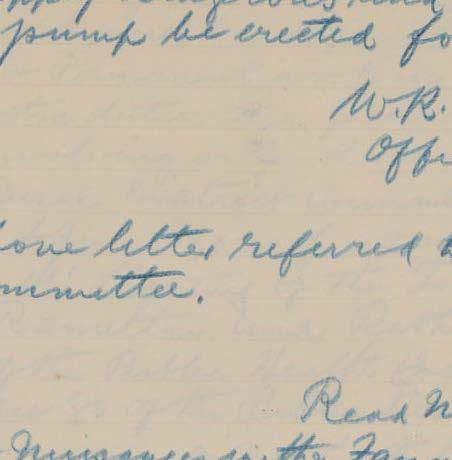 pump be erected fo
W.R.
Offi
bove letter referred t
ommittee.
Read N
Nuisances in the Fan